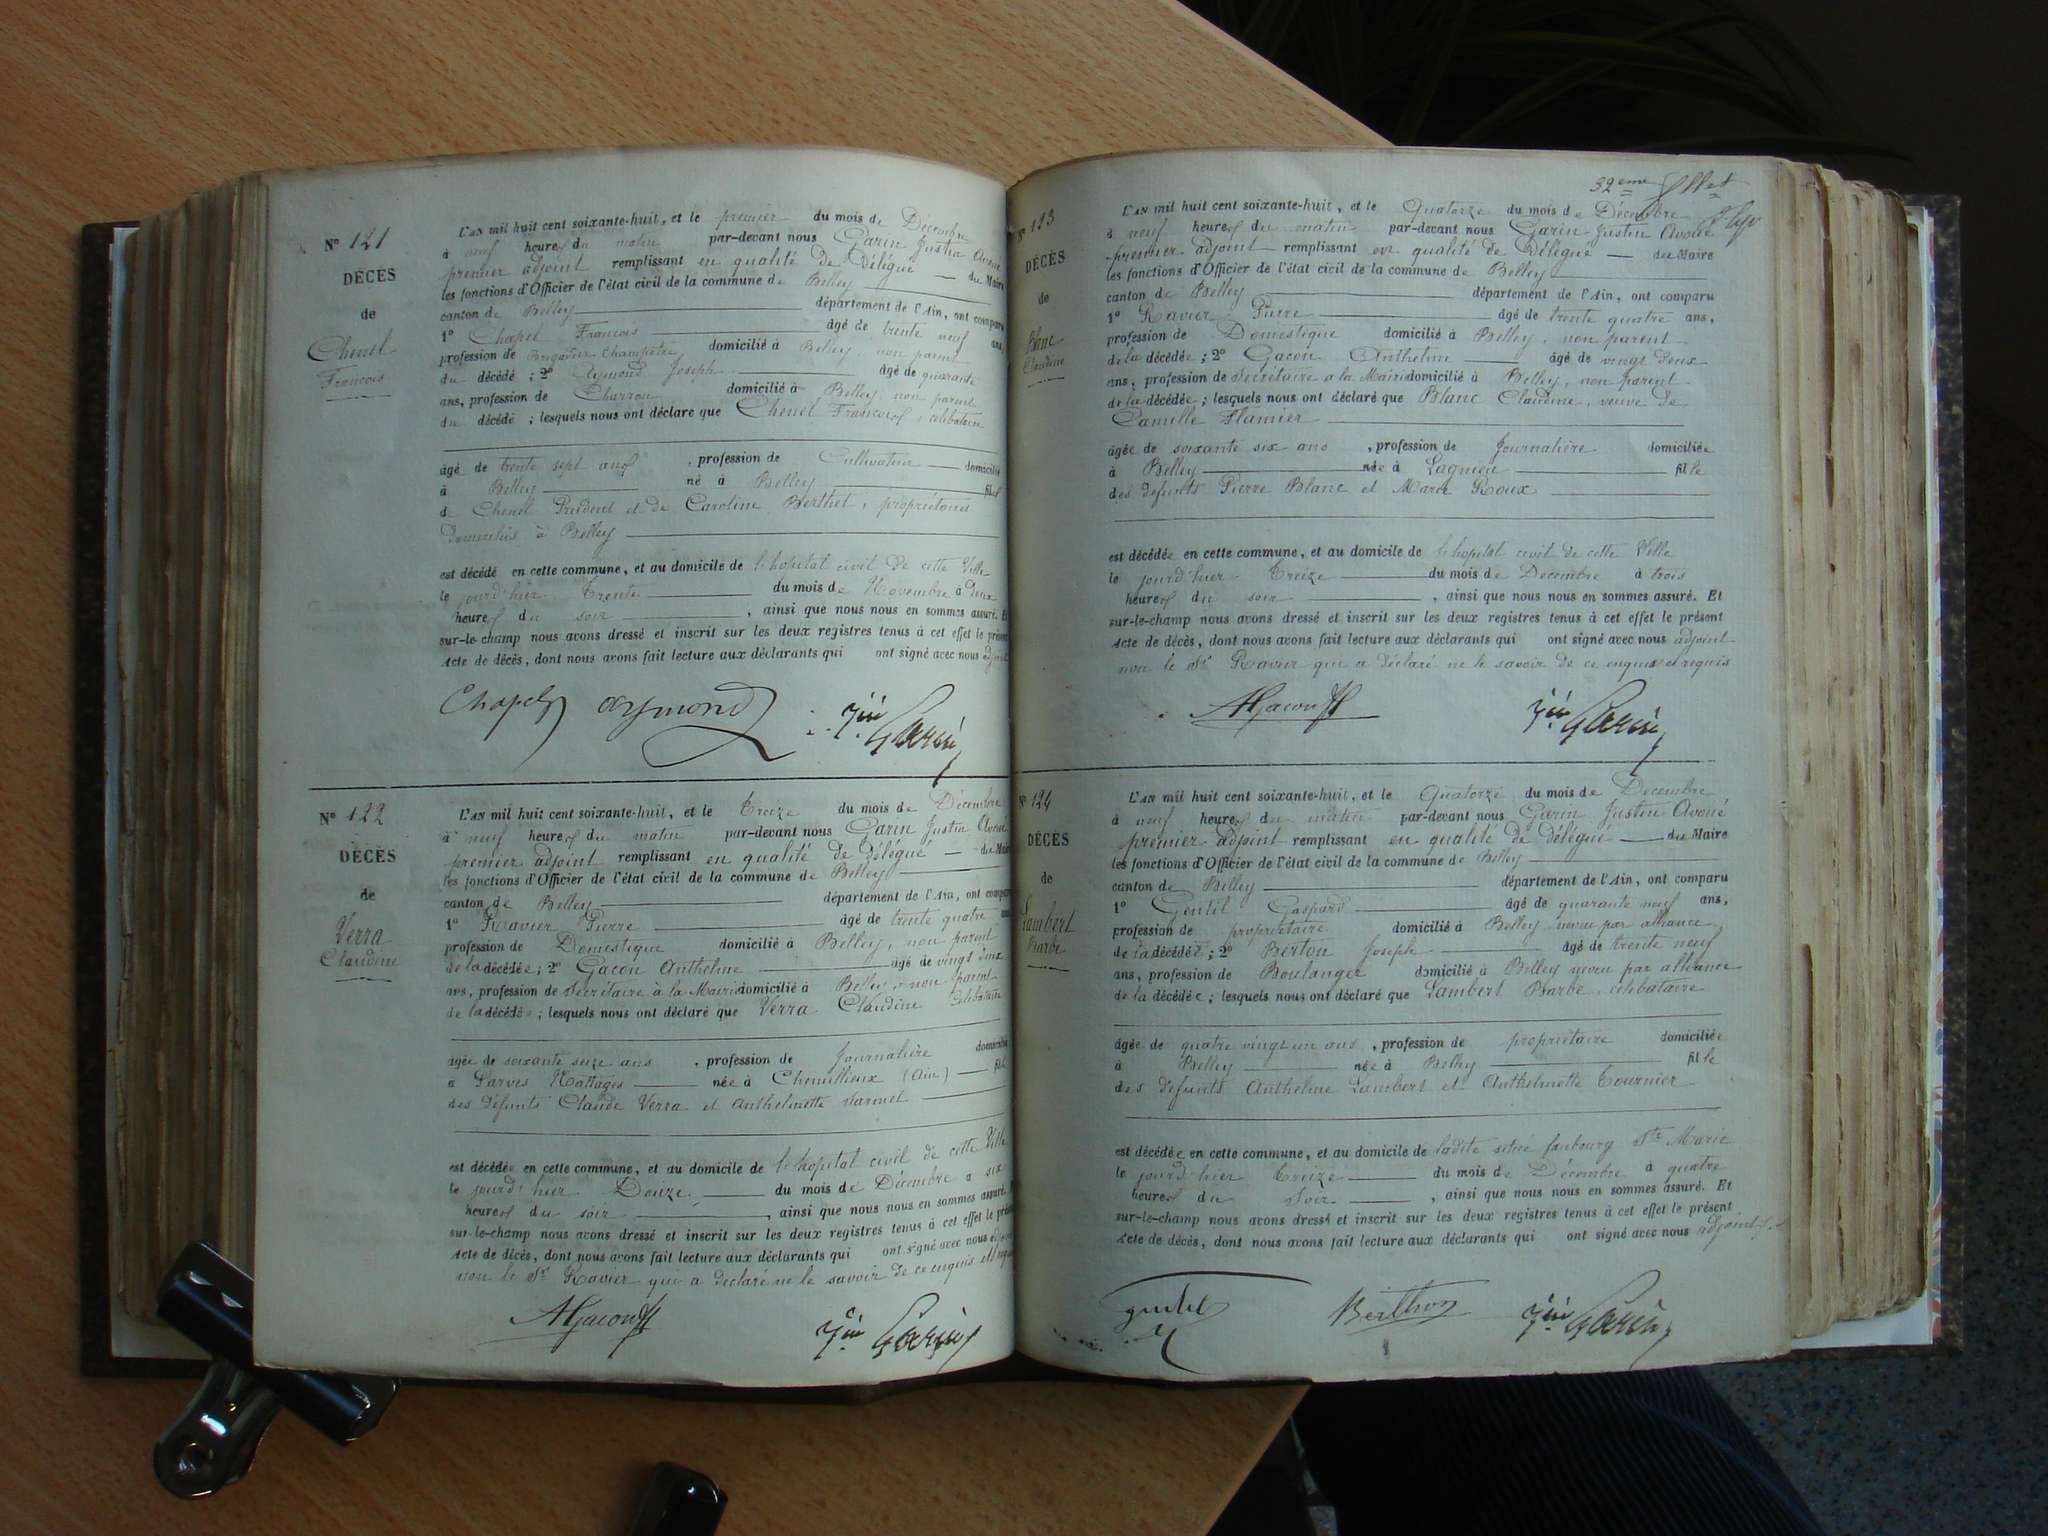 N° 121
DÉCÈS
de
Chenel
François
L'AN mil huit cent soixante-huit, et le premier du mois de Décembre
à neuf heures du matin par-devant nous Garin Justin Avoué
premier adjoint remplissant en qualité de Délégué — du Maire
les fonctions d'Officier de l'état civil de la commune de Belley
canton de Belley département de l'Ain, ont comparu
1° Chapel François âgé de trente neuf ans,
profession de Brigadier Champêtre domicilié à Belley, non parent
du décédé ; 2° Aymond Joseph âgé de quarante
ans, profession de Charron domicilié à Belley non parent
du décédé ; lesquels nous ont déclaré que Chenel François, célibataire
âgé de trente sept ans, profession de Cultivateur — domicilié
à Belley né à Belley fils
de Chenel Prudent et de Caroline Berthet, propriétaires
domiciliés à Belley
est décédé en cette commune, et au domicile de l'hopital civil de cette Ville
le jourd'hier Trente du mois de Novembre à deux
heures du soir, ainsi que nous nous en sommes assuré. Et
sur-le-champ nous avons dressé et inscrit sur les deux registres tenus à cet effet le présent
acte de décès, dont nous avons fait lecture aux déclarants qui ont signé avec nous adjoint
Chapel Aymond Garin
N° 122
DÉCÈS
de
Verra
Claudine
L'AN mil huit cent soixante-huit, et le Treize du mois de Décembre
à neuf heures du matin par-devant nous Garin Justin Avoué
premier adjoint remplissant en qualité de Délégué — du Maire
les fonctions d'Officier de l'état civil de la commune de Belley
canton de Belley département de l'Ain, ont comparu
1° Ravier Pierre âgé de trente quatre ans
profession de Domestique domicilié à Belley, non parent
de la décédée ; 2° Gacon Anthelme âgé de vingt deux
ans, profession de Secrétaire à la Mairie domicilié à Belley, non parent
de la décédée ; lesquels nous ont déclaré que Verra Claudine célibataire
âgée de soixante seize ans, profession de Journalière domiciliée
à Parves Nattages née à Chemillieux (Ain) — fille
des défunts Claude Verra et Anthelmette
est décédée en cette commune, et au domicile de l'hopital civil de cette Ville
le jourd'hier Douze du mois de Décembre à six
heures du soir, ainsi que nous nous en sommes assuré.
sur-le-champ nous avons dressé et inscrit sur les deux registres tenus à cet effet le présent
acte de décès, dont nous avons fait lecture aux déclarants qui ont signé avec nous
non le Sr Ravier qui a déclaré ne le savoir de ce enquis et
AGacon Garin
32eme
N° 123
DÉCÈS
de
Blanc
Claudine
L'AN mil huit cent soixante-huit, et le Quatorze du mois de Décembre
à neuf heures du matin par-devant nous Garin Justin Avoué
premier adjoint remplissant en qualité de Délégué — du Maire
les fonctions d'Officier de l'état civil de la commune de Belley
canton de Belley département de l'Ain, ont comparu
1° Ravier Pierre âgé de trente quatre ans,
profession de Domestique domicilié à Belley, non parent
de la décédée ; 2° Gacon Anthelme âgé de vingt deux
ans, profession de Secrétaire a la Mairie domicilié à Belley, non parent
de la décédée ; lesquels nous ont déclaré que Blanc Claudine, veuve de
Camille Flamier
âgée de soixante six ans, profession de Journalière domiciliée
à Belley née à Lagnieu fille
des défunts Pierre Blanc et Marie Roux
est décédée en cette commune, et au domicile de l'hopital civil de cette Ville
le jourd'hier Treize du mois de Decembre à trois
heures du soir, ainsi que nous nous en sommes assuré. Et
sur-le-champ nous avons dressé et inscrit sur les deux registres tenus à cet effet le présent
acte de décès, dont nous avons fait lecture aux déclarants qui ont signé avec nous adjoint
non le Sr Ravier qui a déclaré ne le savoir de ce enquis et requis
AGacon Garin
N° 124
DÉCÈS
de
Lambert
Barbe
L'AN mil huit cent soixante-huit, et le Quatorze du mois de Decembre
à neuf heures du matin par-devant nous Garin Justin Avoué
premier adjoint remplissant en qualité de Délégué — du Maire
les fonctions d'Officier de l'état civil de la commune de Belley
canton de Belley département de l'Ain, ont comparu
1° Gentil Gaspard âgé de quarante neuf ans,
profession de propriétaire domicilié à Belley neveu par alliance
de la décédée ; 2° Berton Joseph âgé de trente neuf
ans, profession de Boulanger domicilié à Belley neveu par alliance
de la décédée ; lesquels nous ont déclaré que Lambert Barbe, célibataire
âgée de quatre vingt un ans, profession de propriétaire domiciliée
à Belley née à Belley fille
des défunts Anthelme Lambert et Anthelmette Tournier
est décédée en cette commune, et au domicile de ladite situé faubourg Ste Marie
le jourd'hier Treize du mois de Décembre à quatre
heures du Soir, ainsi que nous nous en sommes assuré. Et
sur-le-champ nous avons dressé et inscrit sur les deux registres tenus à cet effet le présent
acte de décès, dont nous avons fait lecture aux déclarants qui ont signé avec nous adjoint
Berthon Garin